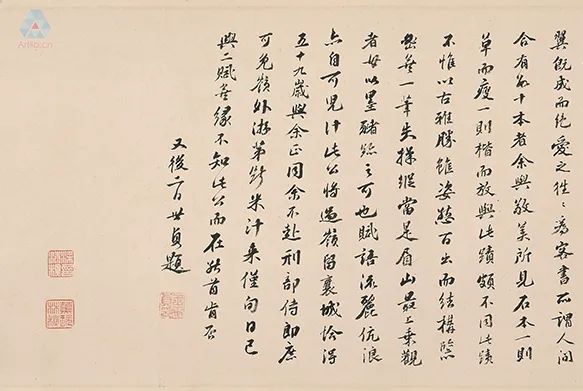 翼既成而絕愛之往〻為客書所謂人間
合有數十本者余與敬美所見石本一則
草而瘦一則楷而放與此蹟頗不同此蹟
不惟以古雅勝雖姿態百出而結構緊
密無一筆失操縱當是眉山最上乘觀
者毋以墨豬之可也賦語流麗伉浪
亦自可見計此公將過嶺留襄城恰得
五十九歲與余正同余不赴刑部侍郎庶
可免嶺外游第斷米汁來僅旬日已
與二賦緣不知此公而在能首肯否
又後二日世貞題
Artkp.cn